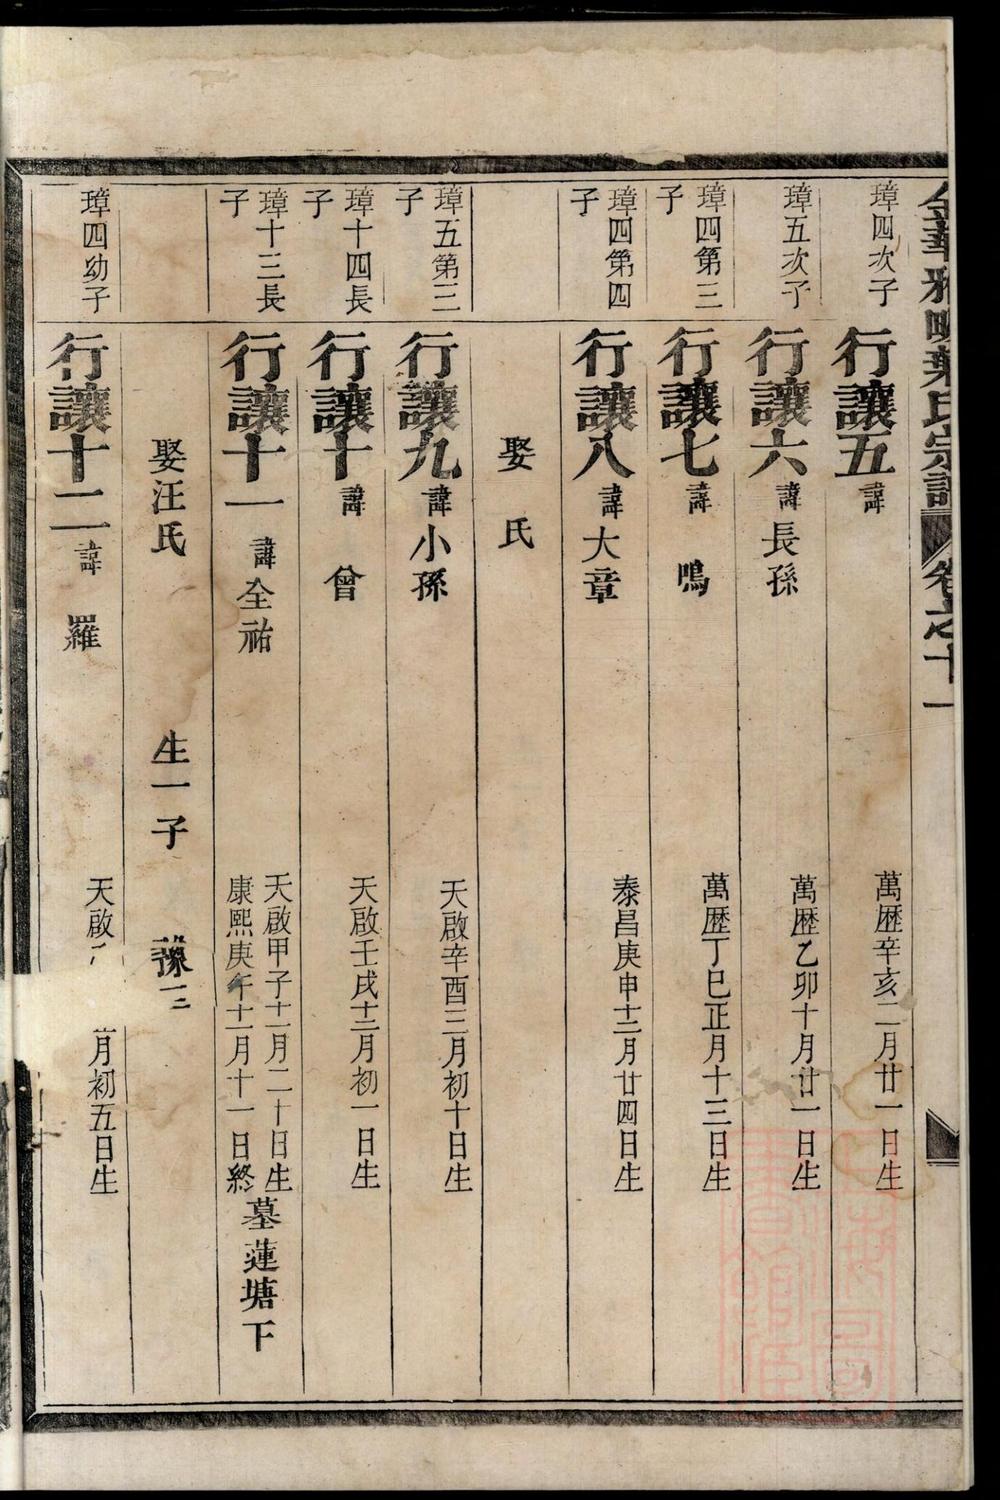 金華雅畈葉氏宗譜 卷之十一
璋四次子 行讓五 諱 萬歷辛亥二月廿一日生
璋五次子 行讓六 諱 長孫 萬歷乙卯十月廿一日生
璋四第三子 行讓七 諱 鳴 萬歷丁巳正月十三日生
璋四第四子 行讓八 諱 大章 泰昌庚申十二月廿四日生
娶 氏
璋五第三子 行讓九 諱 小孫 天啟辛酉三月初十日生
璋十四長子 行讓十 諱 曾 天啟壬戌十二月初一日生
璋十三長子 行讓十一 諱 全祐 天啟甲子十一月二十日生
康熙庚午十一月十一日終 墓蓮塘下
娶汪氏 生一子 豫三
璋四幼子 行讓十二 諱 羅 天啟 月初五日生